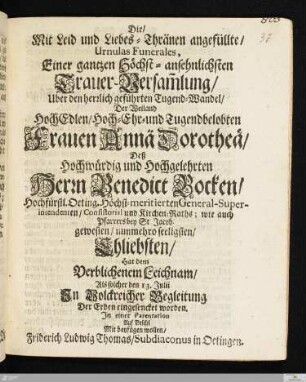 Die/
Mit Leid und Liebes-Thränen angefüllte/
Urnulas Funerales,
Einer gantzen Höchst-ansehnlichsten
Trauer-Versam̃lung/
Uber den herrlich geführten Tugend-Wandel/
Der Weiland
HochEdlen/Hoch-Ehr-und Tugendbelobten
Frauen Annä Dorotheä/
Deß
Hochwürdig und Hochgelehrten
Herrn Benedict Bocken/
Hochfürstl. Oeting. Höchst-meritierten General-Super-
intendenten/ Consistorial und Kirchen-Raths; wie auch
Pfarrers bey St. Jacob.
gewesten/ nunmehro seeligsten/
Ehliebsten/
Hat dem
Verblichenem Leichnam/
Als solcher den 13. Julii
In Volckreicher Begleitung
Der Erden eingesencket worden,
In einer Parentation
Auf Befehl
Mit beyfügen wollen/
Friderich Ludwig Thomas/Subdiaconus in Oetingen.